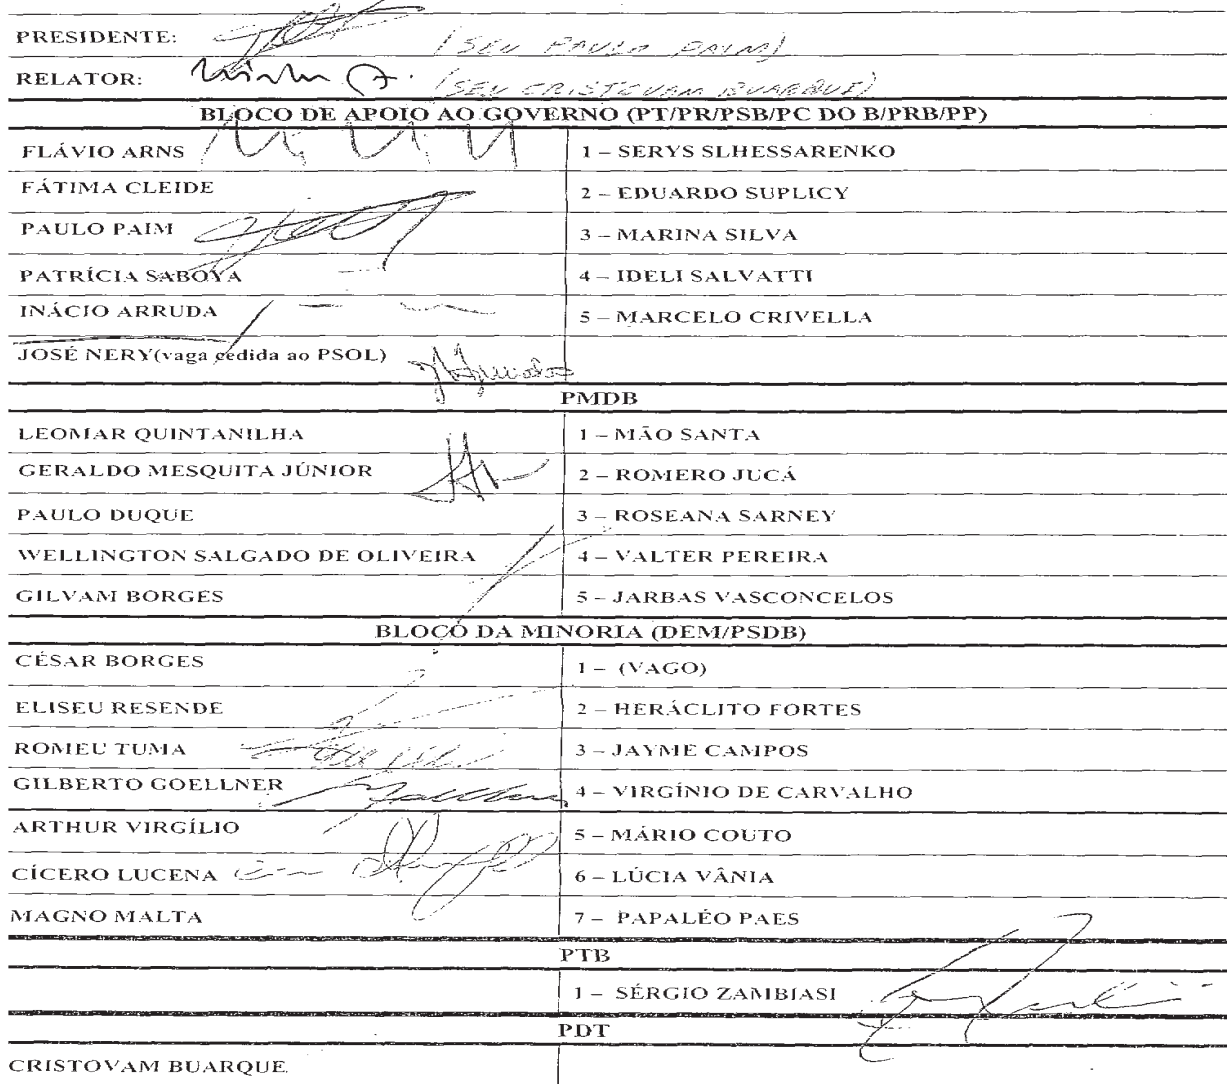 PRESIDENTE: (SEN PAULO PAIM)
RELATOR: (SEN CRISTOVAM BUARQUE)
BLOCO DE APOIO AO GOVERNO (PT/PR/PSB/PC DO B/PRB/PP)
FLÁVIO ARNS 1 – SERYS SLHESSARENKO
FÁTIMA CLEIDE 2 – EDUARDO SUPLICY
PAULO PAIM 3 – MARINA SILVA
PATRÍCIA SABOYA 4 – IDELI SALVATTI
INÁCIO ARRUDA 5 – MARCELO CRIVELLA
JOSÉ NERY(vaga cedida ao PSOL)
PMDB
LEOMAR QUINTANILHA 1 – MÃO SANTA
GERALDO MESQUITA JÚNIOR 2 – ROMERO JUCÁ
PAULO DUQUE 3 – ROSEANA SARNEY
WELLINGTON SALGADO DE OLIVEIRA 4 – VALTER PEREIRA
GILVAM BORGES 5 – JARBAS VASCONCELOS
BLOCO DA MINORIA (DEM/PSDB)
CÉSAR BORGES 1 – (VAGO)
ELISEU RESENDE 2 – HERÁCLITO FORTES
ROMEU TUMA 3 – JAYME CAMPOS
GILBERTO GOELLNER 4 – VIRGÍNIO DE CARVALHO
ARTHUR VIRGÍLIO 5 – MÁRIO COUTO
CÍCERO LUCENA 6 – LÚCIA VÂNIA
MAGNO MALTA 7 – PAPALÉO PAES
PTB
1 – SÉRGIO ZAMBIASI
PDT
CRISTOVAM BUARQUE